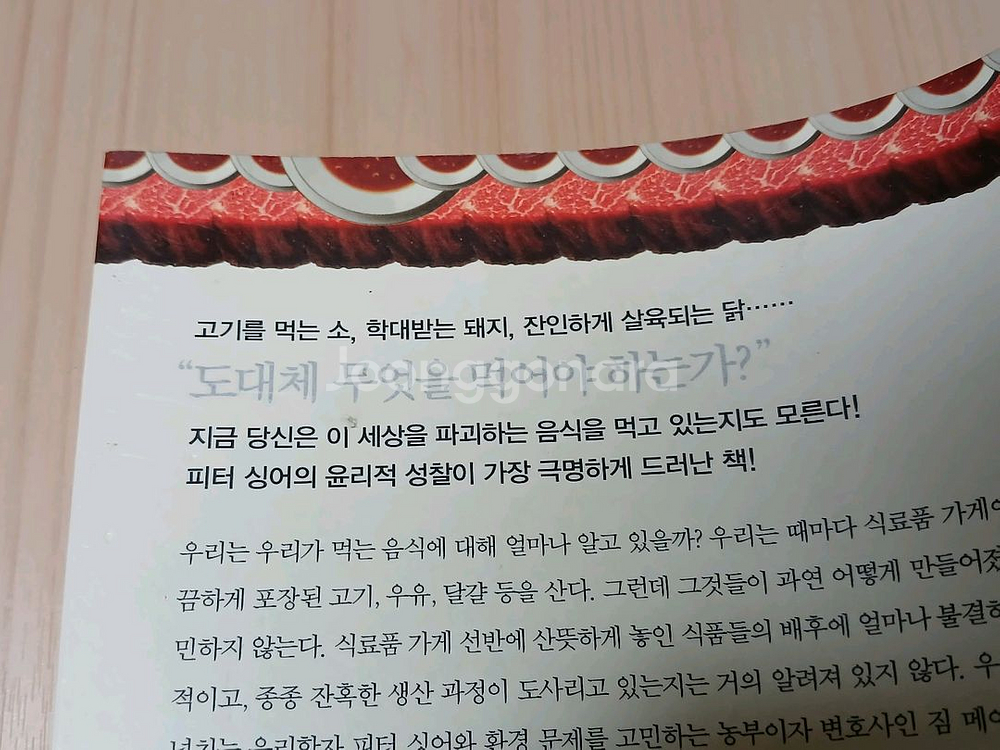 고기를 먹는 소, 학대받는 돼지, 잔인하게 살육되는 닭……
“도대체 무엇을 먹어야 하는가?”
지금 당신은 이 세상을 파괴하는 음식을 먹고 있는지도 모른다!
피터 싱어의 윤리적 성찰이 가장 극명하게 드러난 책!
우리는 우리가 먹는 음식에 대해 얼마나 알고 있을까? 우리는 때마다 식료품 가게에
끔하게 포장된 고기, 우유, 달걀 등을 산다. 그런데 그것들이 과연 어떻게 만들어졌
민하지 않는다. 식료품 가게 선반에 산뜻하게 놓인 식품들의 배후에 얼마나 불결하
적이고, 종종 잔혹한 생산 과정이 도사리고 있는지는 거의 알려져 있지 않다. 우
윤리학자 피터 싱어와 환경 문제를 고민하는 농부이자 변호사인 짐 메이